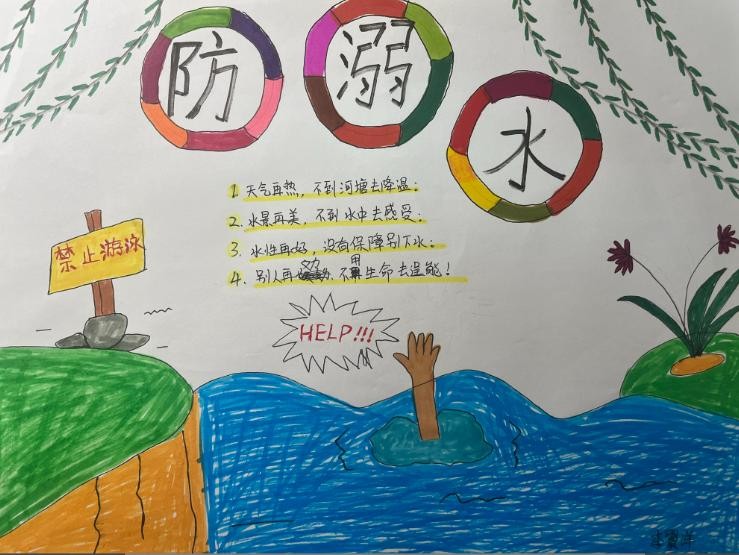 防溺水
1. 天气再热，不到河塘去降温；
2. 水景再美，不到水中去感受；
3. 水性再好，没有保障别下水；
4. 别人再劝，不用生命去逞能！
禁止游泳
HELP!!!